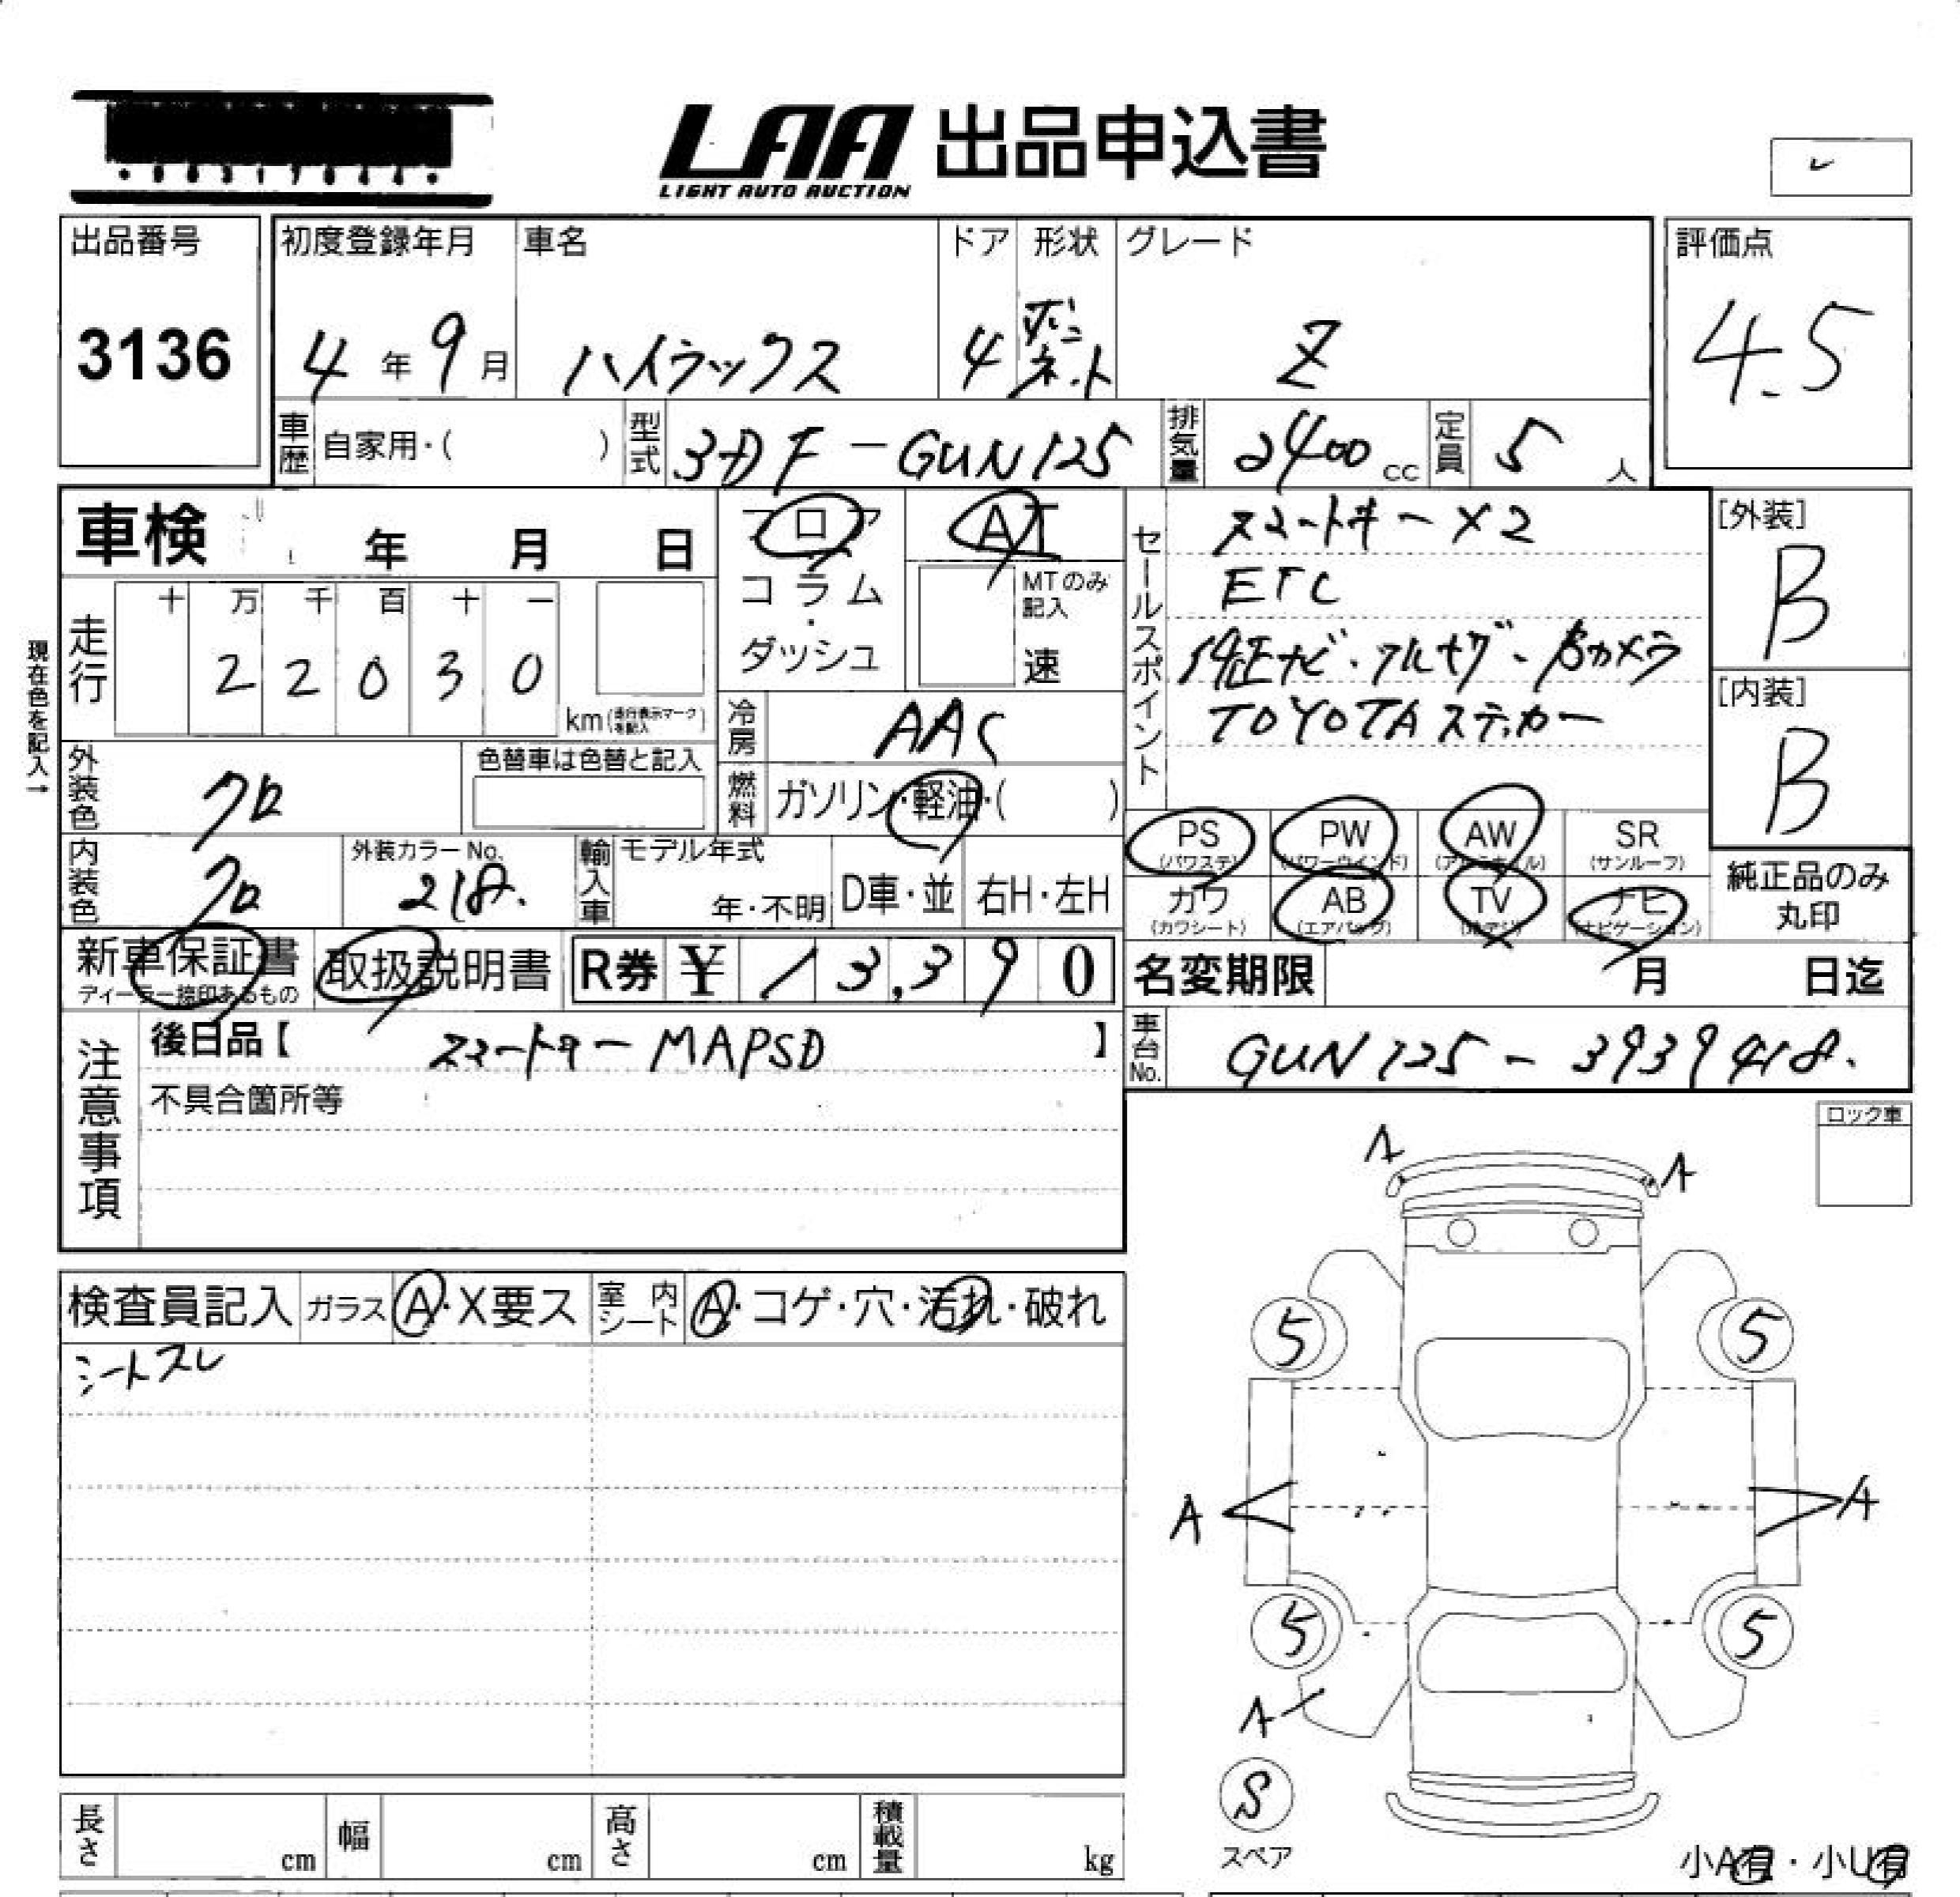 LAA 出品申込書
LIGHT AUTO AUCTION
出品番号 初度登録年月 車名 ドア 形状 グレード 評価点
3136 4年 9月 ハイラックス 4 ボンネット Z 4.5
車歴 自家用・( ) 型式 3DF-GUN125 排気量 2400cc 定員 5人
車検 年 月 日 フロア AT
コラム・ MTのみ記入
ダッシュ 速
セールスポイント スマートキー×2
ETC
純正ナビ・フルセグ・Bカメラ
TOYOTAステッカー
[外装] B
[内装] B
現在色を記入→
走行 十 万 千 百 十 一
2 2 0 3 0 km(走行表示マークを記入)
冷房 AAC
外装色 クロ 色替車は色替と記入
燃料 ガソリン・軽油・( )
内装色 クロ 外装カラーNo. 218. 輸入車 モデル年式 年・不明 D車・並 右H・左H
PS (パワステ) PW (パワーウインド) AW (アルミホイル) SR (サンルーフ)
カワ (カワシート) AB (エアバッグ) TV (地デジ) ナビ (ナビゲーション)
純正品のみ丸印
新車保証書 ディーラー捺印あるもの 取扱説明書 R券 ¥ 13,390
名変期限 月 日迄
車台No. GUN125-3939418.
注意事項 後日品【 スマートキー MAPSD 】
不具合箇所等
ロック車
A A
検査員記入 ガラス A・X要ス 室内シート A・コゲ・穴・汚れ・破れ
シートスレ
5 5
A A
5 5
A
S
スペア
長さ cm 幅 cm 高さ cm 積載量 kg
小A有・小U有